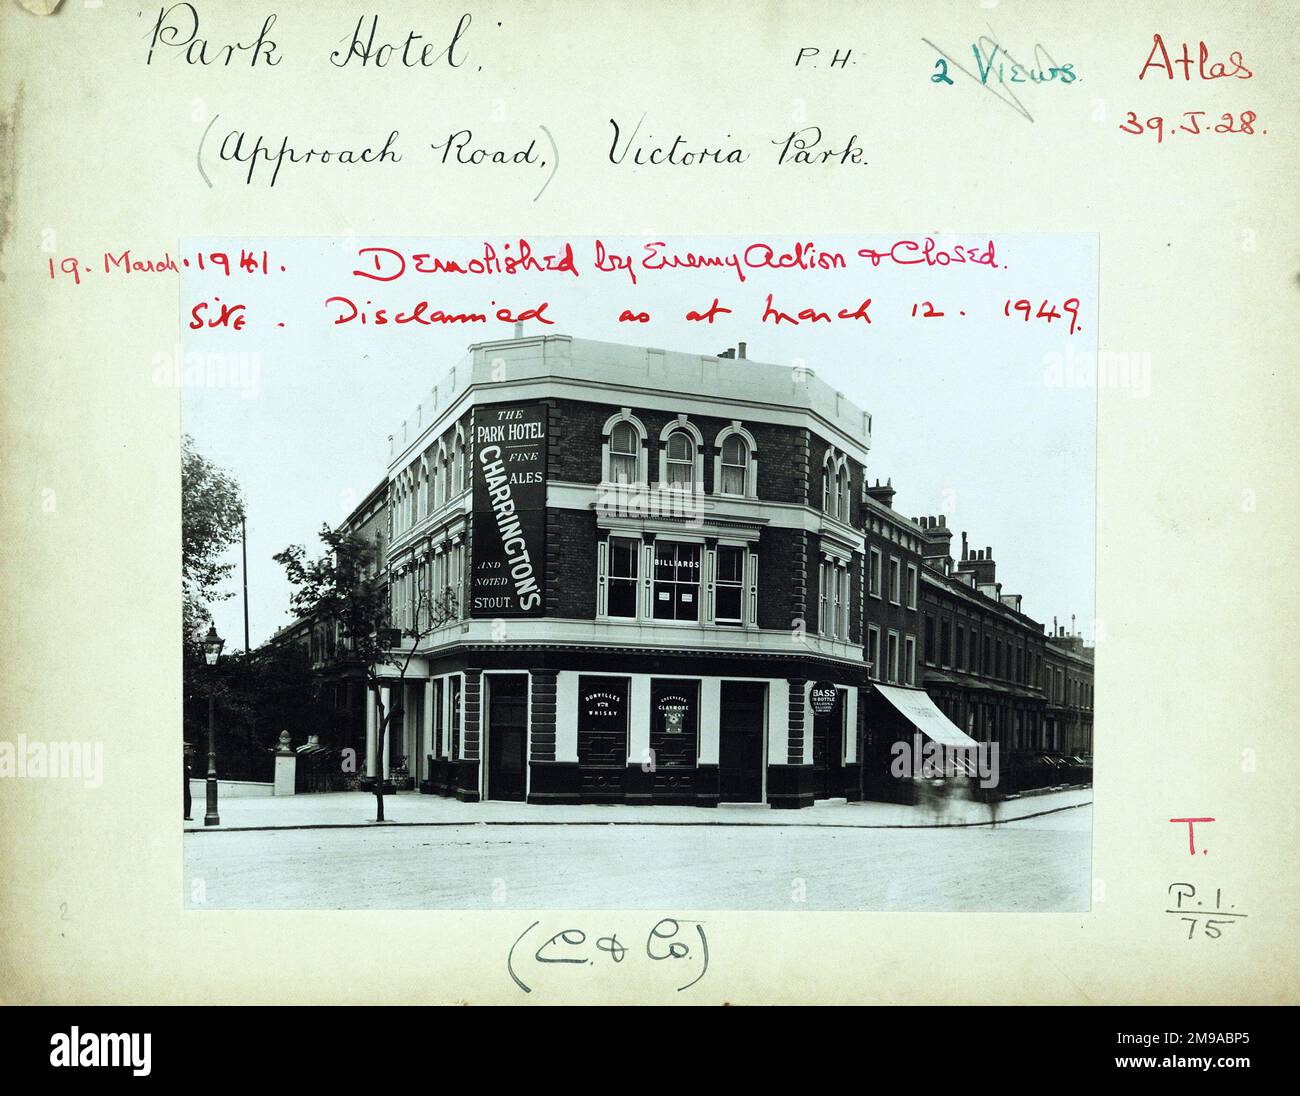 "Park Hotel"
P.H.
2 Views.
Atlas
39.J.28.
(Approach Road,) Victoria Park.
19. March. 1941. Demolished by Enemy Action & Closed.
Site. Disclaimed as at March 12. 1949.
THE
PARK HOTEL
FINE
ALES
CHARRINGTON'S
AND
NOTED
STOUT.
BILLIARDS
DUNVILLES
VR
WHISKY
GREENLEES
CLAYMORE
WHISKY
BASS
IN BOTTLE
T.
P.1.
75
(C. & Co.)
2
alamy
alamy
Image ID: 2M9ABP5
www.alamy.com